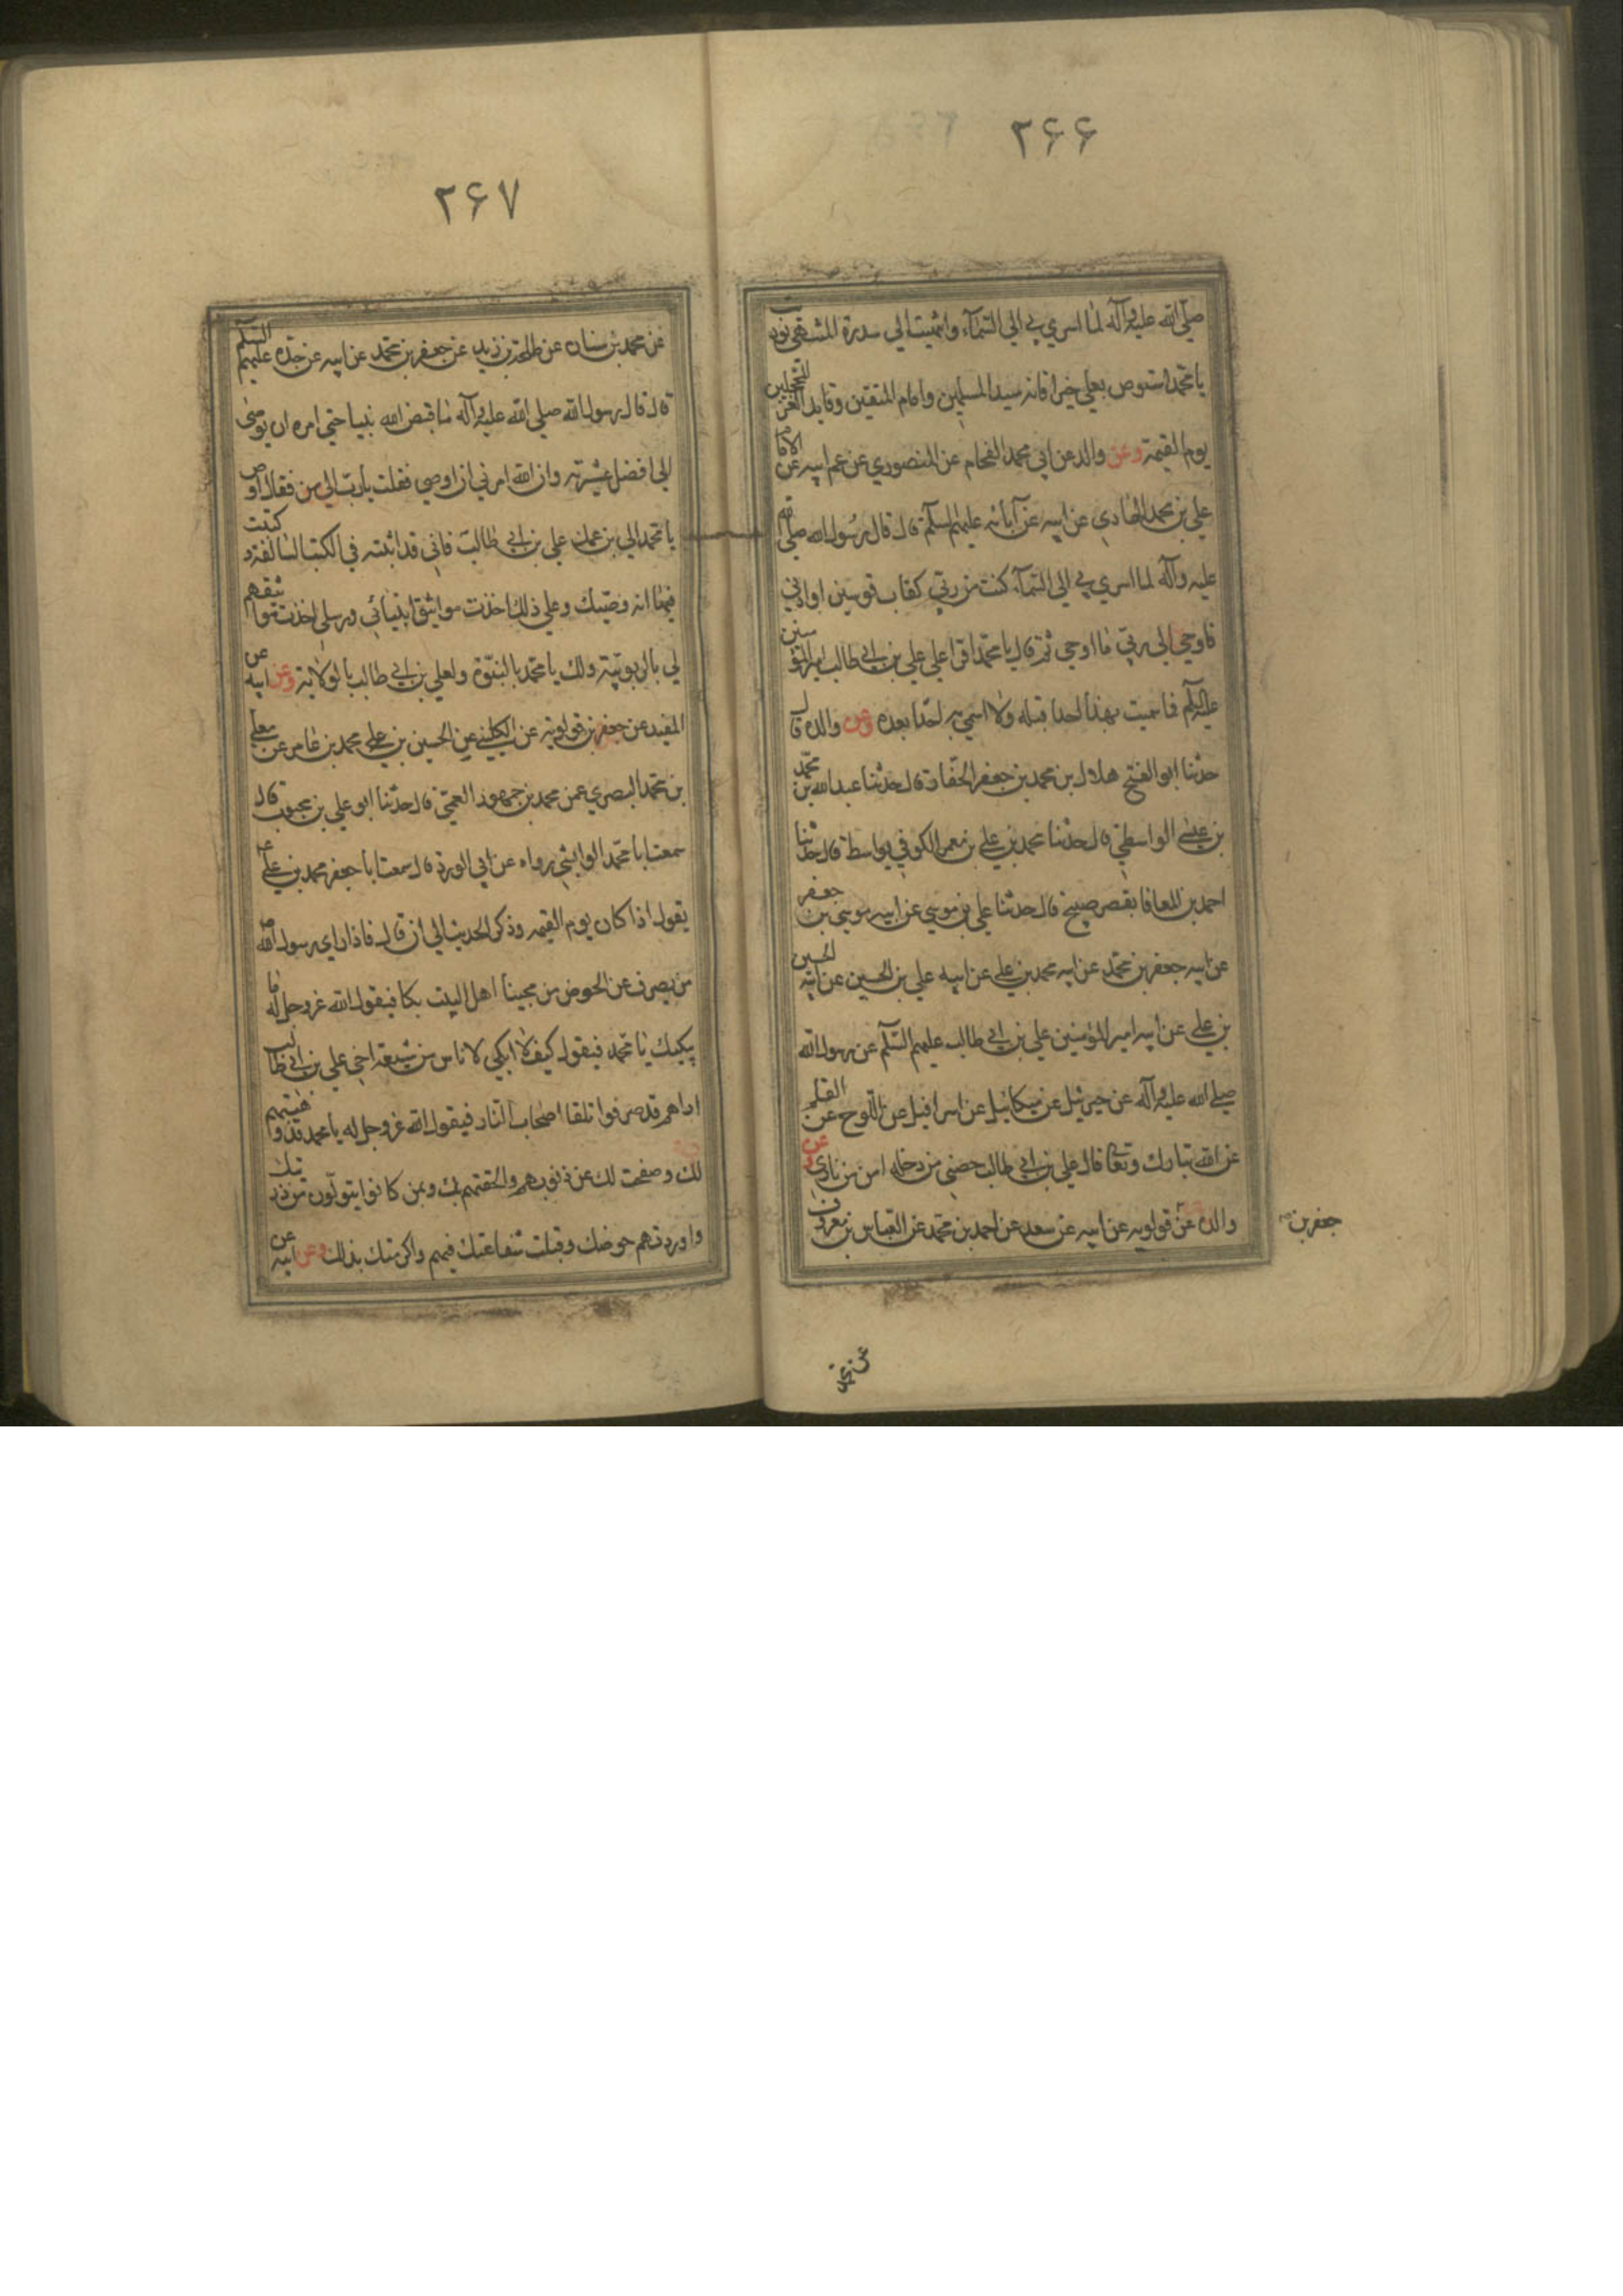 ۲۶۶
صلى الله عليه وآله لما اسري بي الي السماء وانتهيت الي سدرة المنتهى نوديت
يا محمد استوص بعلي خيرا فانه سيد المسلمين وامام المتقين وقايد الغر المحجلين
يوم القيمة وعن والده عن ابي محمد الفحام عن المنصوري عن عم ابيه عن الامام
علي بن محمد الهادي عن ابيه عن آبائه عليهم السلام قال قال رسول الله صلى الله
عليه وآله لما اسري بي الي السماء كنت من ربي كقاب قوسين او ادني
فاوحي الي ربي ما اوحي ثم قال يا محمد اقرا علي علي بن ابي طالب امير المؤمنين
عليه السلام فما سميت بهذا احدا قبله ولا اسمي به احدا بعده وعن والده قال
حدثنا ابو الفتح هلال بن محمد بن جعفر الحفار قال حدثنا عبد الله بن محمد
بن عيسى الواسطي قال حدثنا محمد بن علي بن معمر الكوفي بواسط قال حدثنا
احمد بن المعافا بقصر صبيح قال حدثنا علي بن موسي عن ابيه موسي بن جعفر
عن ابيه جعفر بن محمد عن ابيه محمد بن علي عن ابيه علي بن الحسين عن ابيه الحسين
بن علي عن ابيه امير المؤمنين علي بن ابي طالب عليهم السلام عن رسول الله
صلى الله عليه وآله عن جبرئيل عن ميكائيل عن اسرافيل عن اللوح عن القلم
عن الله تبارك وتعالى قال علي بن ابي طالب حصني من دخله امن من ناري وعن
والده عن قولويه عن ابيه عن سعد عن احمد بن محمد عن العباس بن معروف
جعفر بن
عن محمد
۲۶۷
عن محمد بن سنان عن طلحة بن زيد عن جعفر بن محمد عن ابيه عن جده عليهم السلام
قال قال رسول الله صلى الله عليه وآله ما قبض الله نبيا حتي امره ان يوصى
الي افضل عشيرته وان الله امرني ان اوصي فقلت يا رب الي من فقال اوص
يا محمد الي بن عمك علي بن ابي طالب فاني قد اثبته في الكتب السالفة وكتبت
فيها انه وصيك وعلي ذلك اخذت مواثيق انبيائي ورسلي اخذت مواثيقهم
لي بالربوبية ولك يا محمد بالنبوة ولعلي بن ابي طالب بالولاية وعن ابيه عن
المفيد عن جعفر بن قولويه عن الكليني عن الحسين بن علي محمد بن عامر عن معلى
بن محمد البصري عن محمد بن جمهور العمي قال حدثنا ابو علي بن محبوب قال
سمعت ابا محمد الوابشي رواه عن ابي الورد قال سمعت ابا جعفر محمد بن علي ع
يقول اذا كان يوم القيمة وذكر الحديث الي ان قال فاذا راى رسول الله ص
من يصرف عن الحوض من محبينا اهل البيت بكا فيقول الله عز وجل له ما
يبكيك يا محمد فيقول كيف لا ابكي لاناس من شيعة اخي علي بن ابي طالب
اراهم قد صرفوا تلقا اصحاب النار فيقول الله عز وجل له يا محمد قد وهبتهم
لك وصفحت لك عن ذنوبهم والحقتهم بك وبمن كانوا يتولون من ذريتك
واوردتهم حوضك وقبلت شفاعتك فيهم واكرمتك بذلك وعن ابيه عن